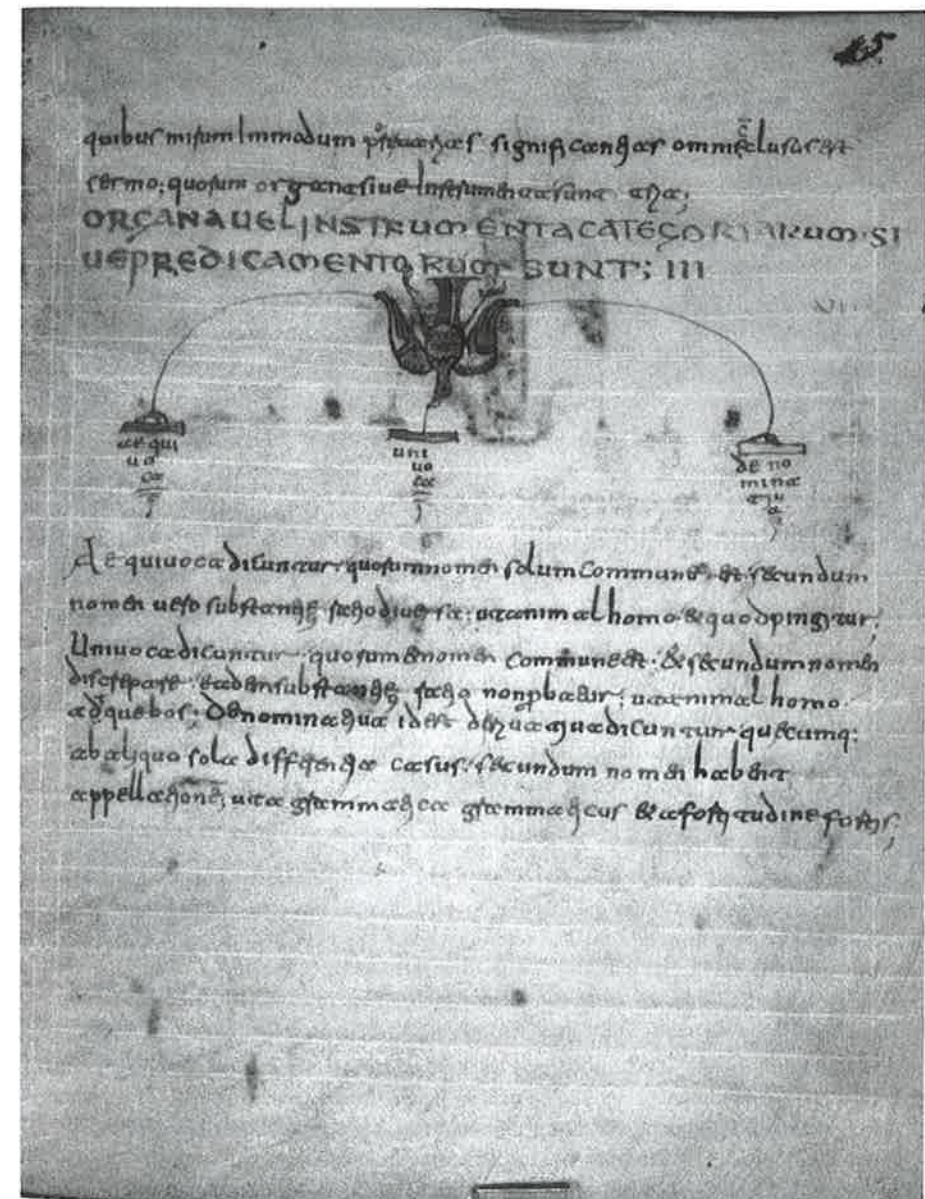 45
quibus Immodum significantias omnis clusus est
sermo; quorum organa siue Instrumenta sunt
ORGANA UEL INSTRUMENTA CATEGORIARUM SI
UE PREDICAMENTORUM SUNT; III
aequi
uo
ca
;
uni
uo
ca
;
de no
mina
tiu
a
;
Aequiuoca dicuntur quorum nomen solum commune est secundum
nomen uero substantię ratio diuersa; ut animal homo & quod pingitur;
Uniuoca dicuntur quorum & nomen commune est; & secundum nomen
discrepare eadem substantię ratio non pbatur; ut animal homo
adque bos; Denominatiua id est deriuatiua dicuntur quęcumq:
ab aliquo sola differentia casus secundum nomen habent
appellationē; ut a grammatica grammaticus & a fortitudine fortis;